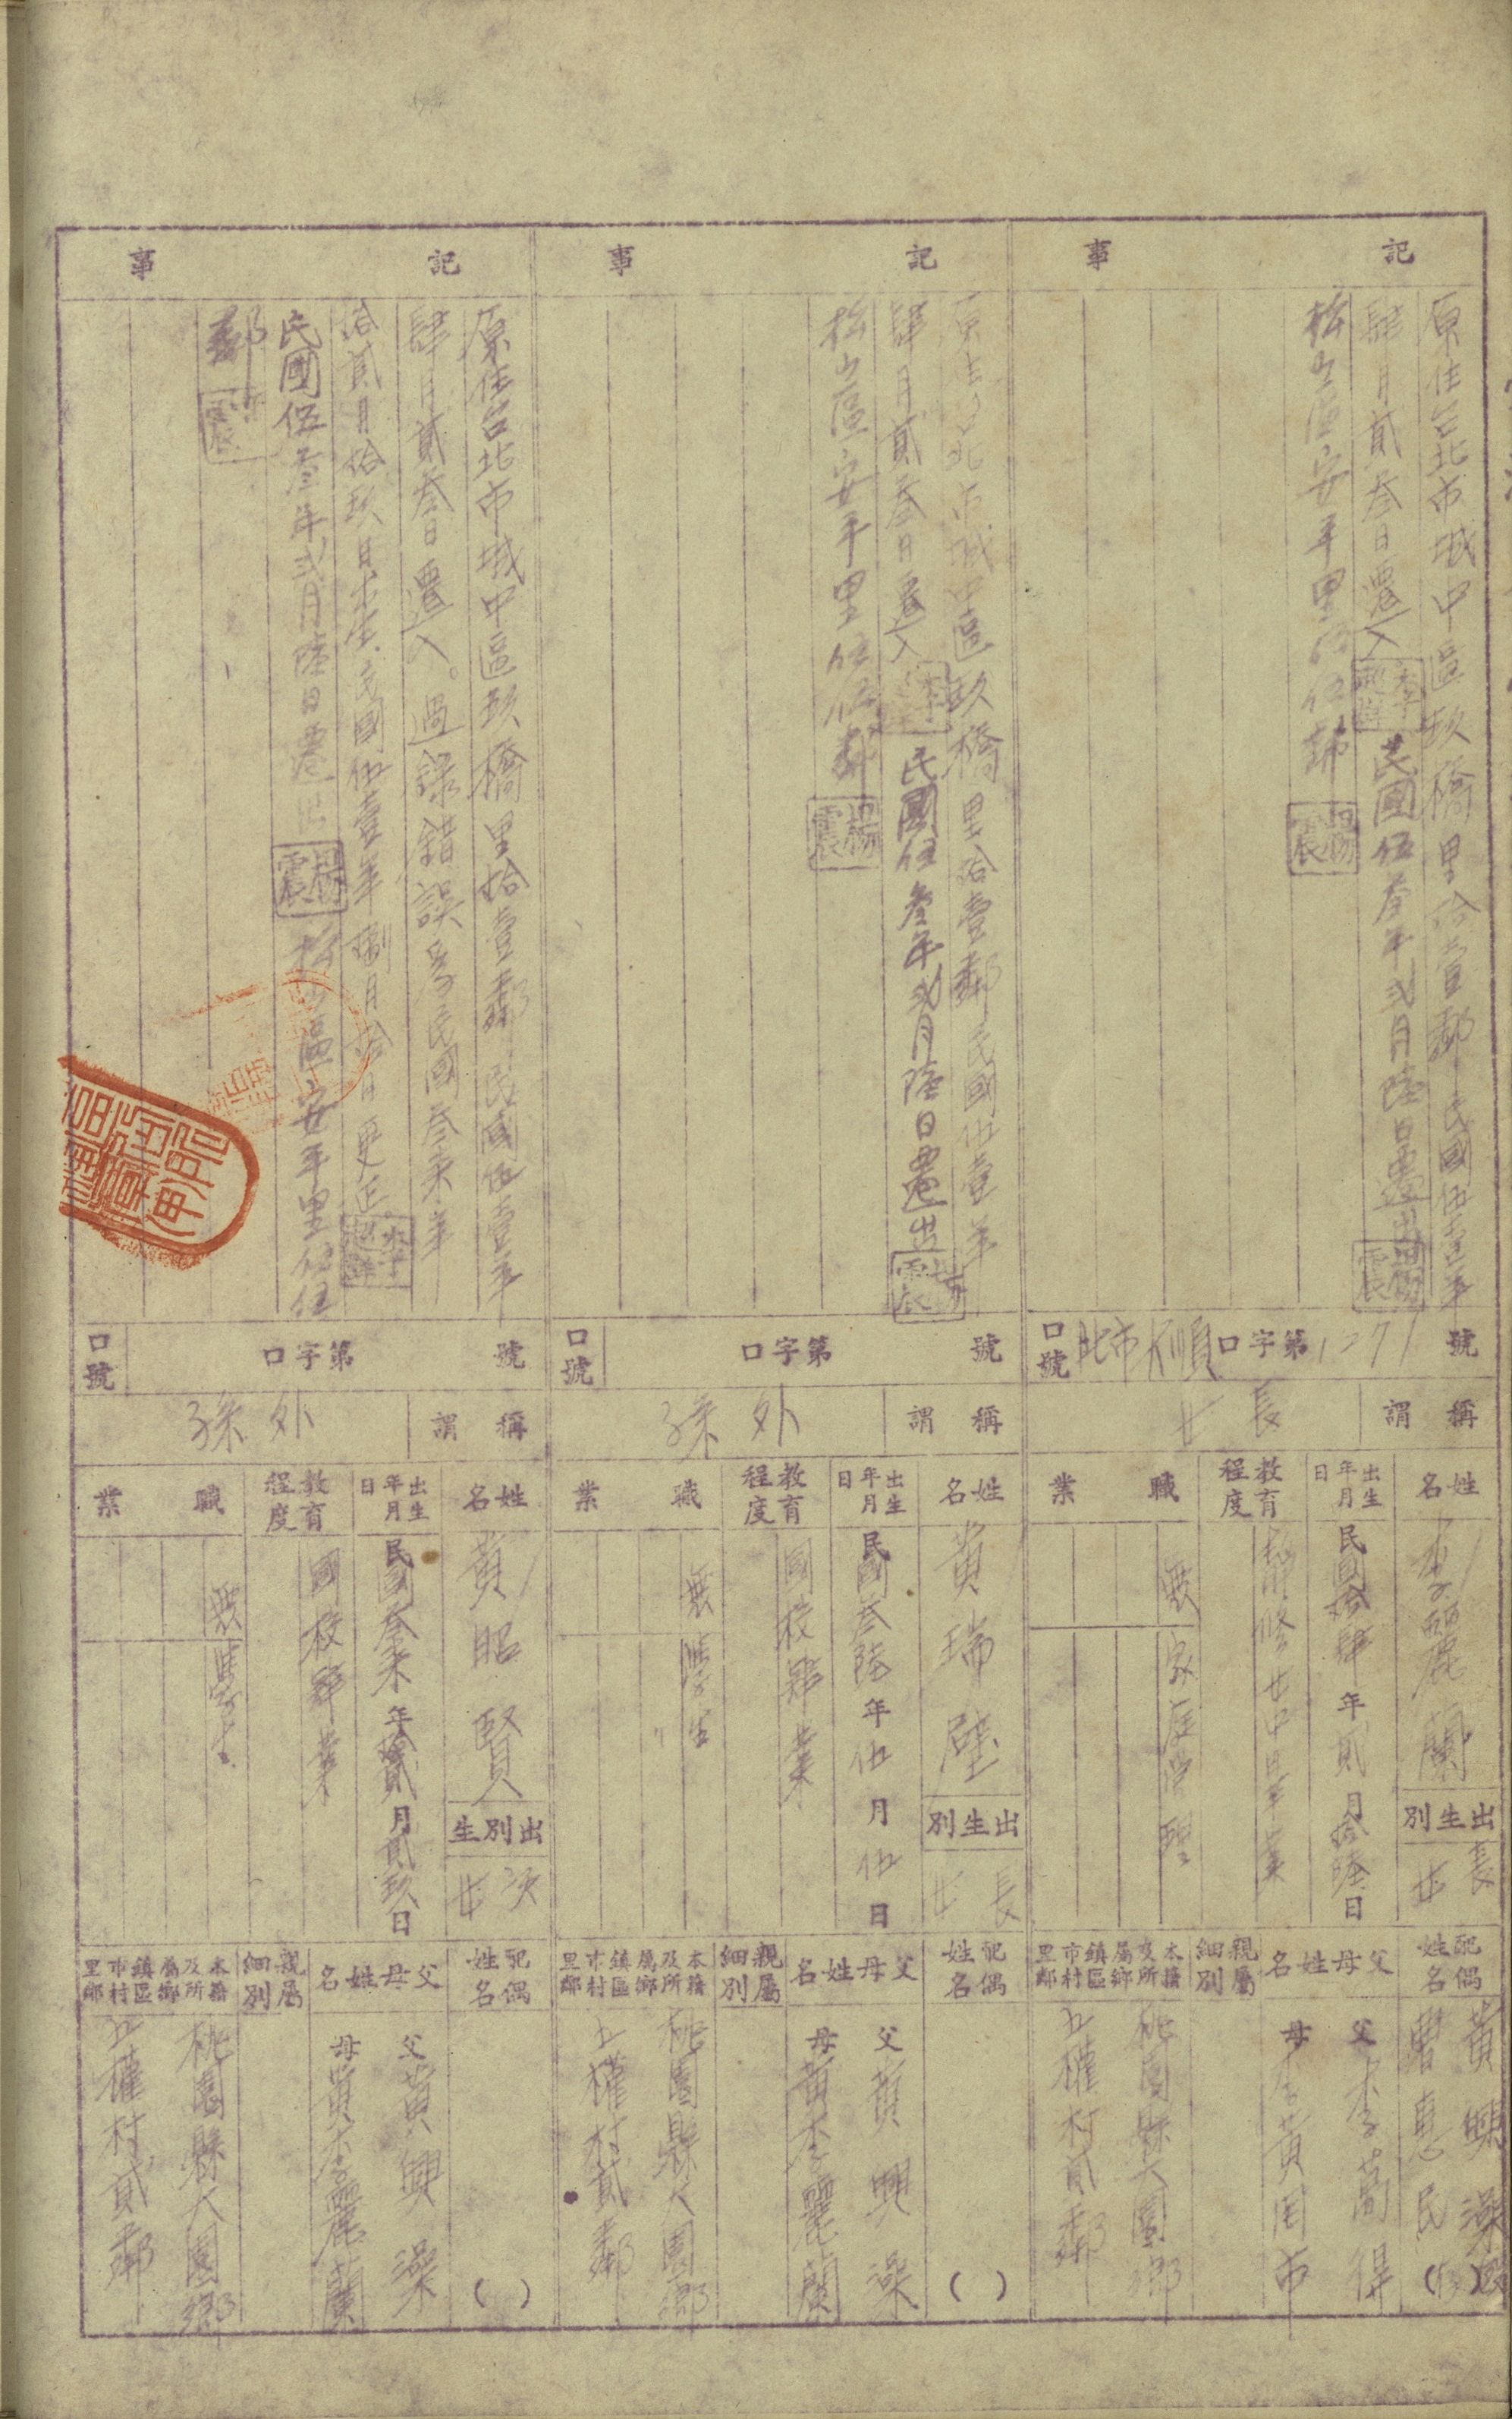 記事
原住台北市城中區玖橋里拾壹鄰民國伍壹年
肆月貳叁日遷入
民國伍叁年弍月陸日遷出
松山區安平里伍伍鄰
楊震
口號
口字第1271號
稱謂
長女
姓名
李麗蘭
出生別
長女
出生年月日
民國拾肆年貳月拾陸日
教育程度
靜修女中畢業
職業
無
家庭管理
配偶姓名
黃興深
曹惠民
父母姓名
父
李萬得
母
李黃周市
親屬細別
本籍及所屬鄉鎮區市村里鄰
桃園縣大園鄉
村貳鄰
記事
原住台北市城中區玖橋里拾壹鄰民國伍壹年
肆月貳叁日遷入
民國伍叁年弍月陸日遷出
松山區安平里伍伍鄰
楊震
口號
口字第 號
稱謂
外孫
姓名
黃瑞陸
出生別
長女
出生年月日
民國叁陸年伍月伍日
教育程度
國校畢業
職業
無
學生
配偶姓名
( )
父母姓名
父
黃興深
母
黃李麗蘭
親屬細別
本籍及所屬鄉鎮區市村里鄰
桃園縣大園鄉
村貳鄰
記事
原住台北市城中區玖橋里拾壹鄰民國伍壹年
肆月貳叁日遷入。過錄錯誤為民國叁柒年
拾貳月拾玖日出生民國伍壹年捌月拾日更正
民國伍叁年弍月陸日遷出
楊震
松山區安平里伍伍
鄰
口號
口字第 號
稱謂
外孫
姓名
黃昭賢
出生別
次女
出生年月日
民國叁柒年拾貳月貳玖日
教育程度
國校畢業
職業
無
學生
配偶姓名
( )
父母姓名
父
黃興深
母
黃李麗蘭
親屬細別
本籍及所屬鄉鎮區市村里鄰
桃園縣大園鄉
村貳鄰